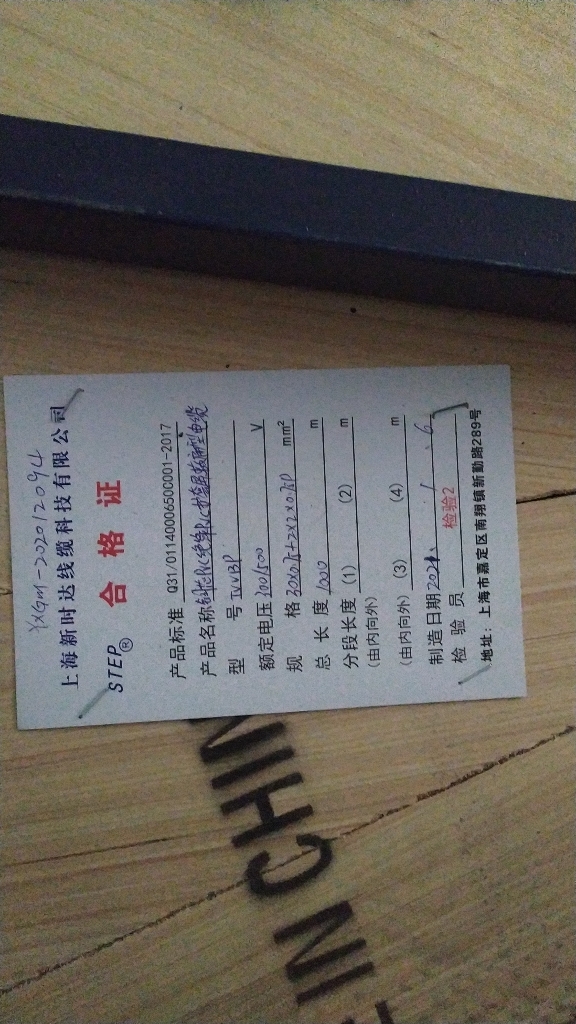 YXGM-202012094
上海新时达线缆科技有限公司
STEP®
合格证
产品标准 Q31/0114000650001-2017
产品名称 铜芯PVC绝缘PVC护套屏蔽扁型电缆
型号 TVVBP
额定电压 300/500 V
规格 30x0.75+2x2x0.75P mm²
总长度 1000 m
分段长度 (1) (2) m
(由内向外)
(3) (4) m
(由内向外)
制造日期 2021、1、6
检验员 检验2
地址：上海市嘉定区南翔镇新勤路289号
IN CHIN